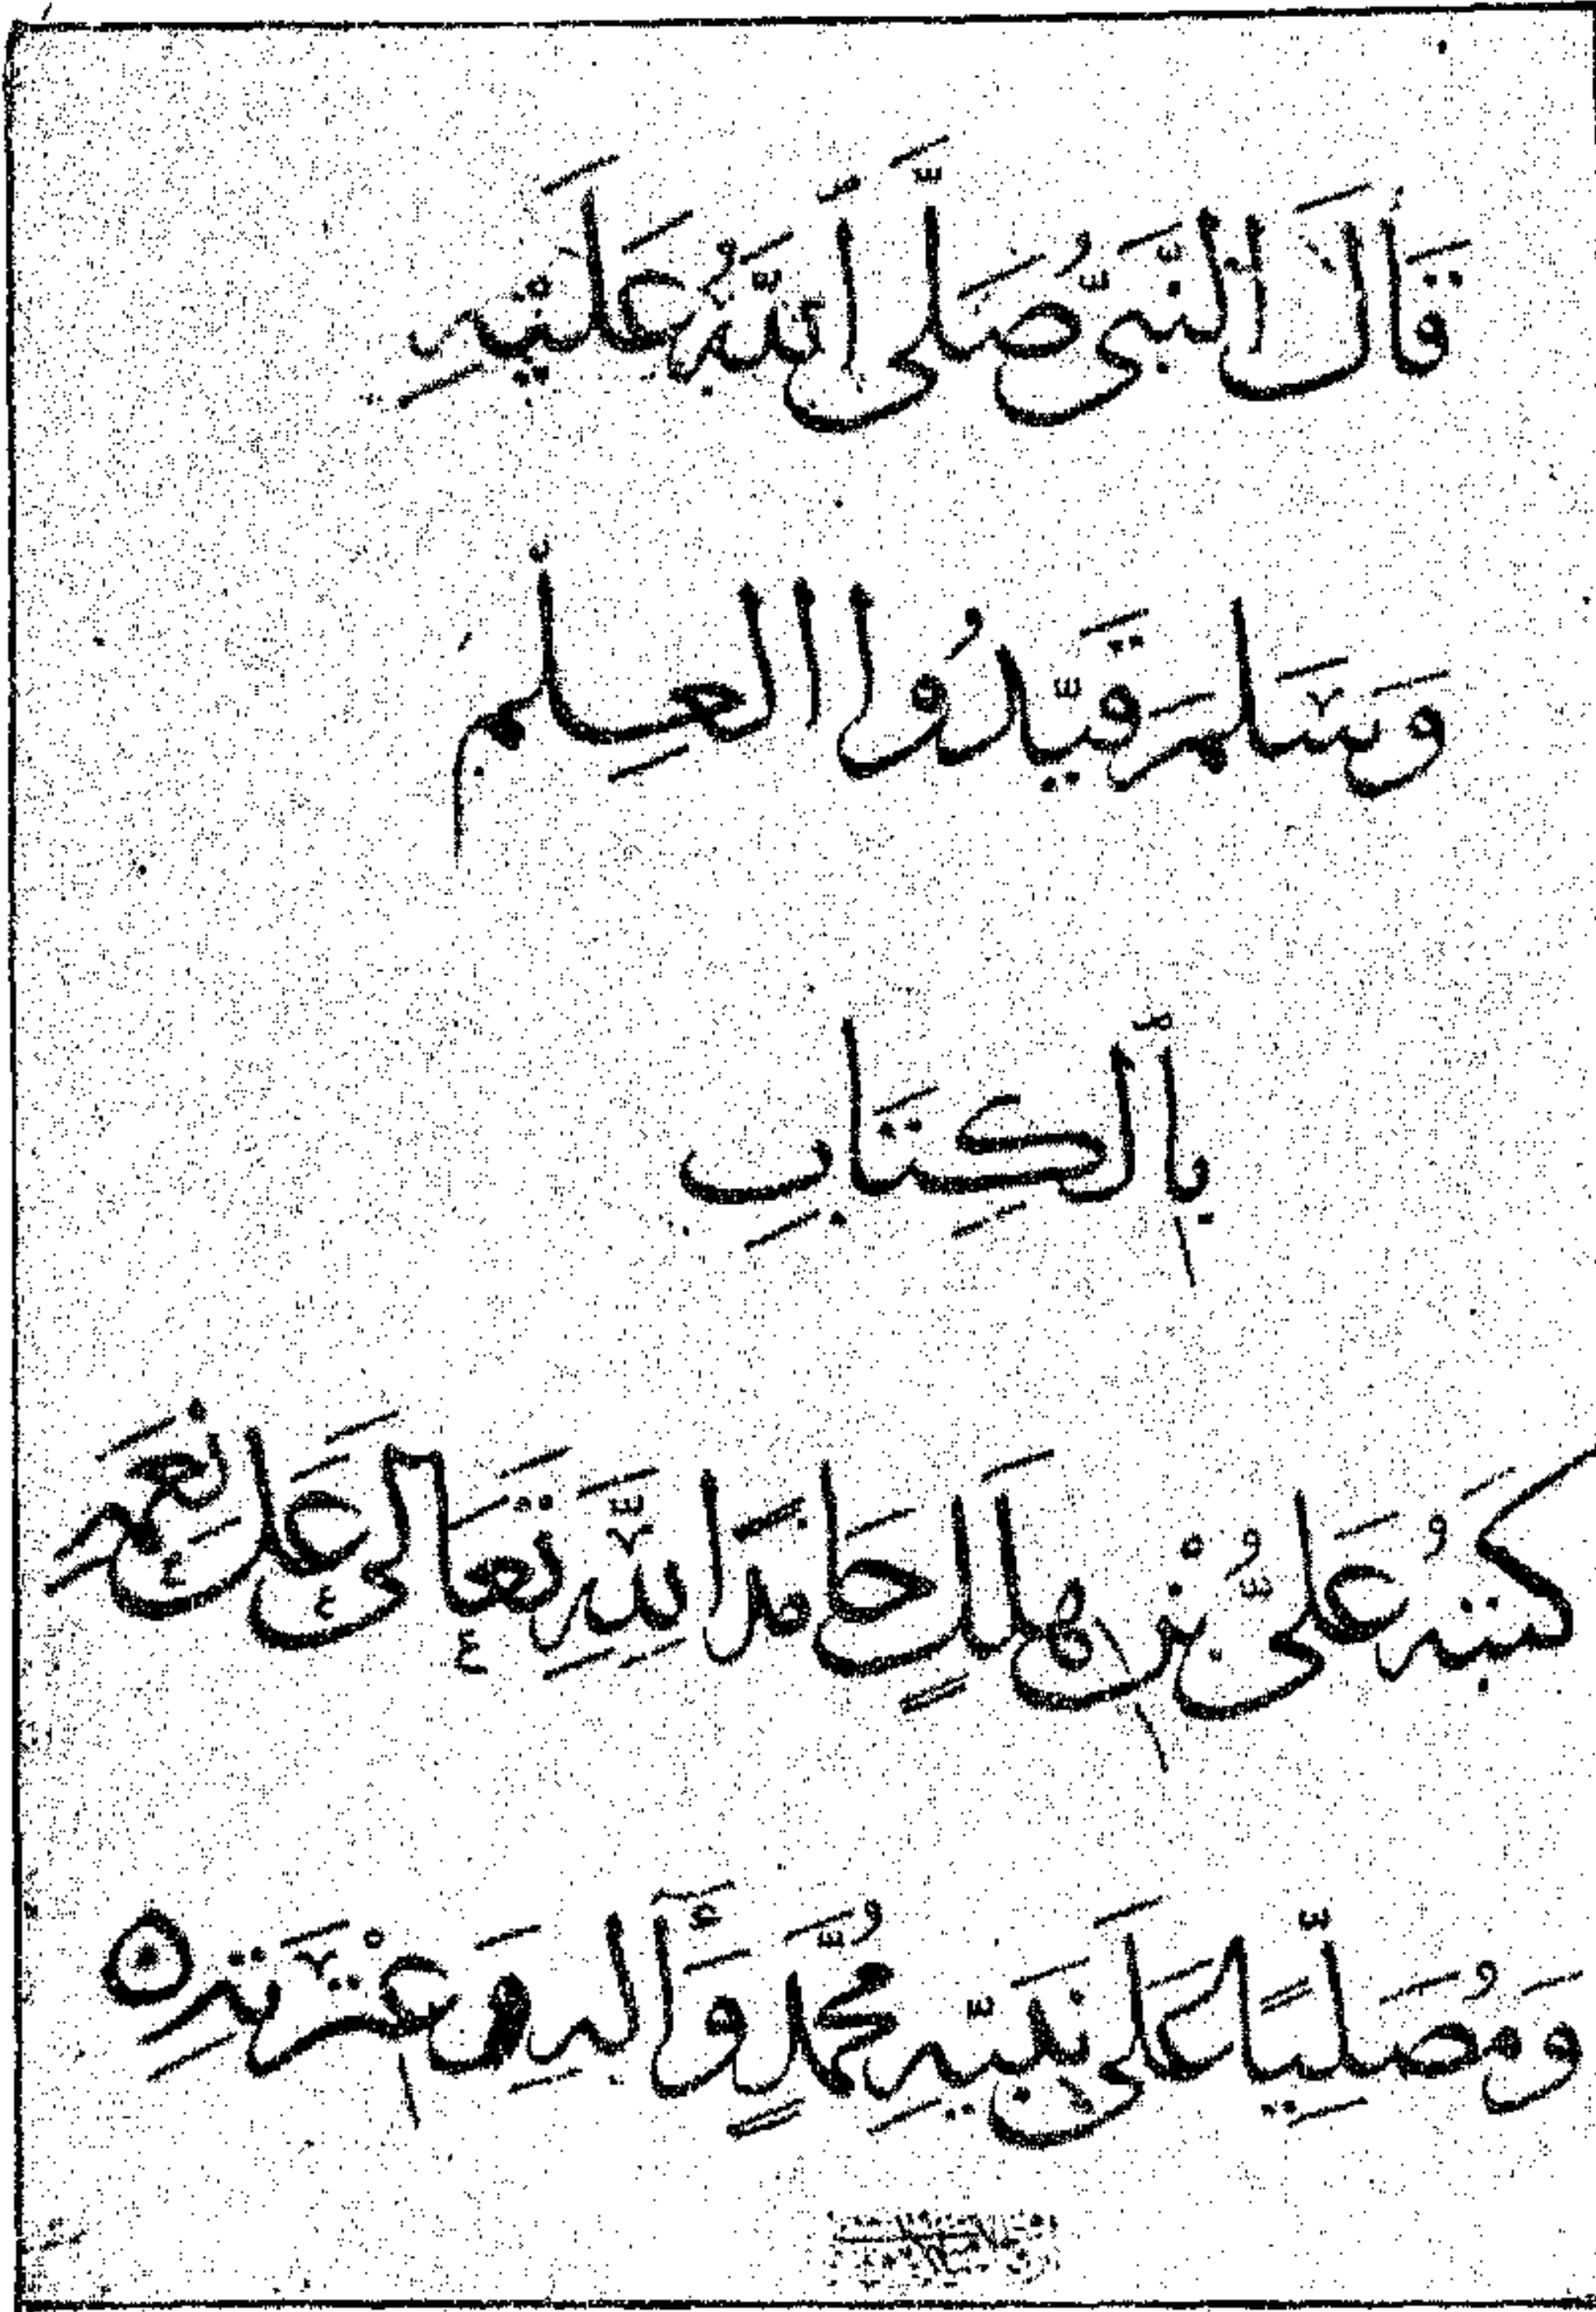 قَالَ النَّبِىُّ صَلَّى ٱللَّهُ عَلَيْهِ
وَسَلَمَ قَيِّدُوا العِلْمَ
بِٱلكِتَابِ
كَتَبَهُ عَلىُّ بْن هِلَالٍ حَامِدَا لِلَّهِ تَعَالَى عَلَى نِعَمِهِ
وَمُصَلِّيًا عَلَى نَبِيِّهِ مُحَمَّدٍ وَأٓلِهِ وَعِتْرَتِهِ